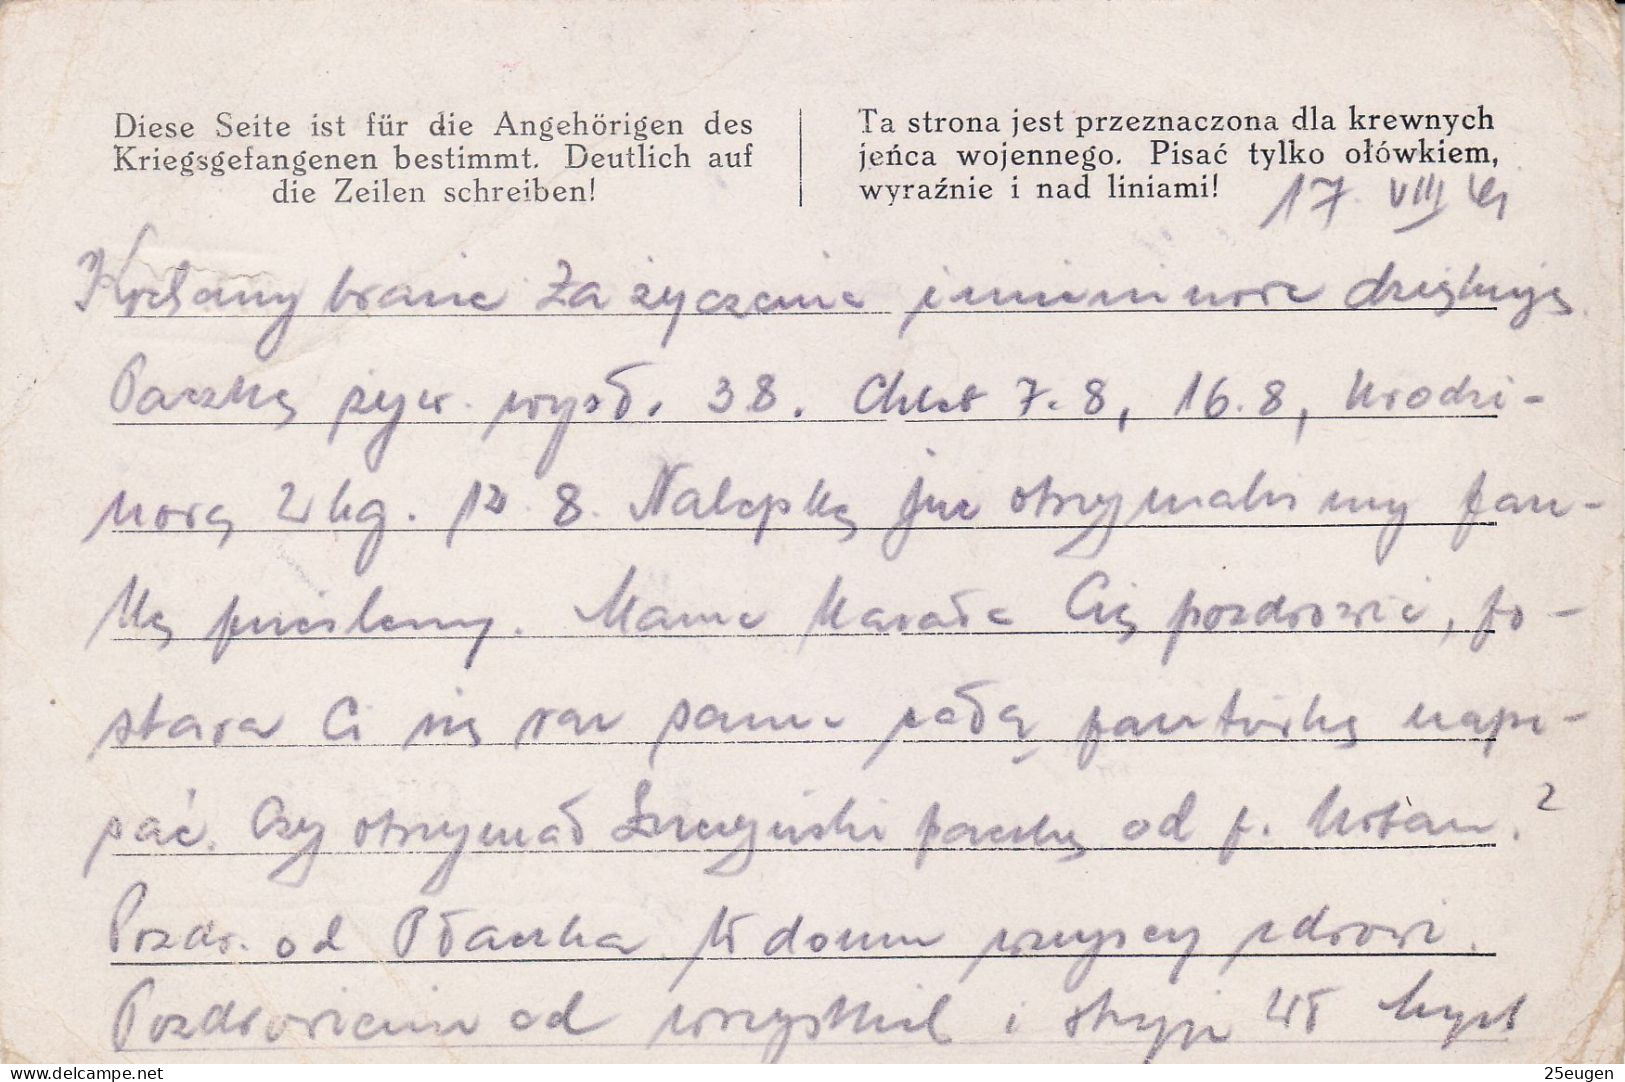 Diese Seite ist für die Angehörigen des
Kriegsgefangenen bestimmt. Deutlich auf
die Zeilen schreiben!
Ta strona jest przeznaczona dla krewnych
jeńca wojennego. Pisać tylko ołówkiem,
wyraźnie i nad liniami!
17 VIII 41
Kochany bracie Za życzenia imieninowe dziękuję.
Paczkę żyw. wysł. 3 8. Chleb 7.8, 16.8, urodzi-
nową 2 kg. 12.8. Nalepkę już otrzymaliśmy pacz-
kę prześlemy. Mama kazała Cię pozdrowić, po-
stara Ci się raz sama całą pocztówkę napi-
sać. Czy otrzymał paczkę od p. ?
Pozdr. od Płaczka. W domu wszyscy zdrowi.
Pozdrowienia od wszystkich i
25eugen
delcampe.net